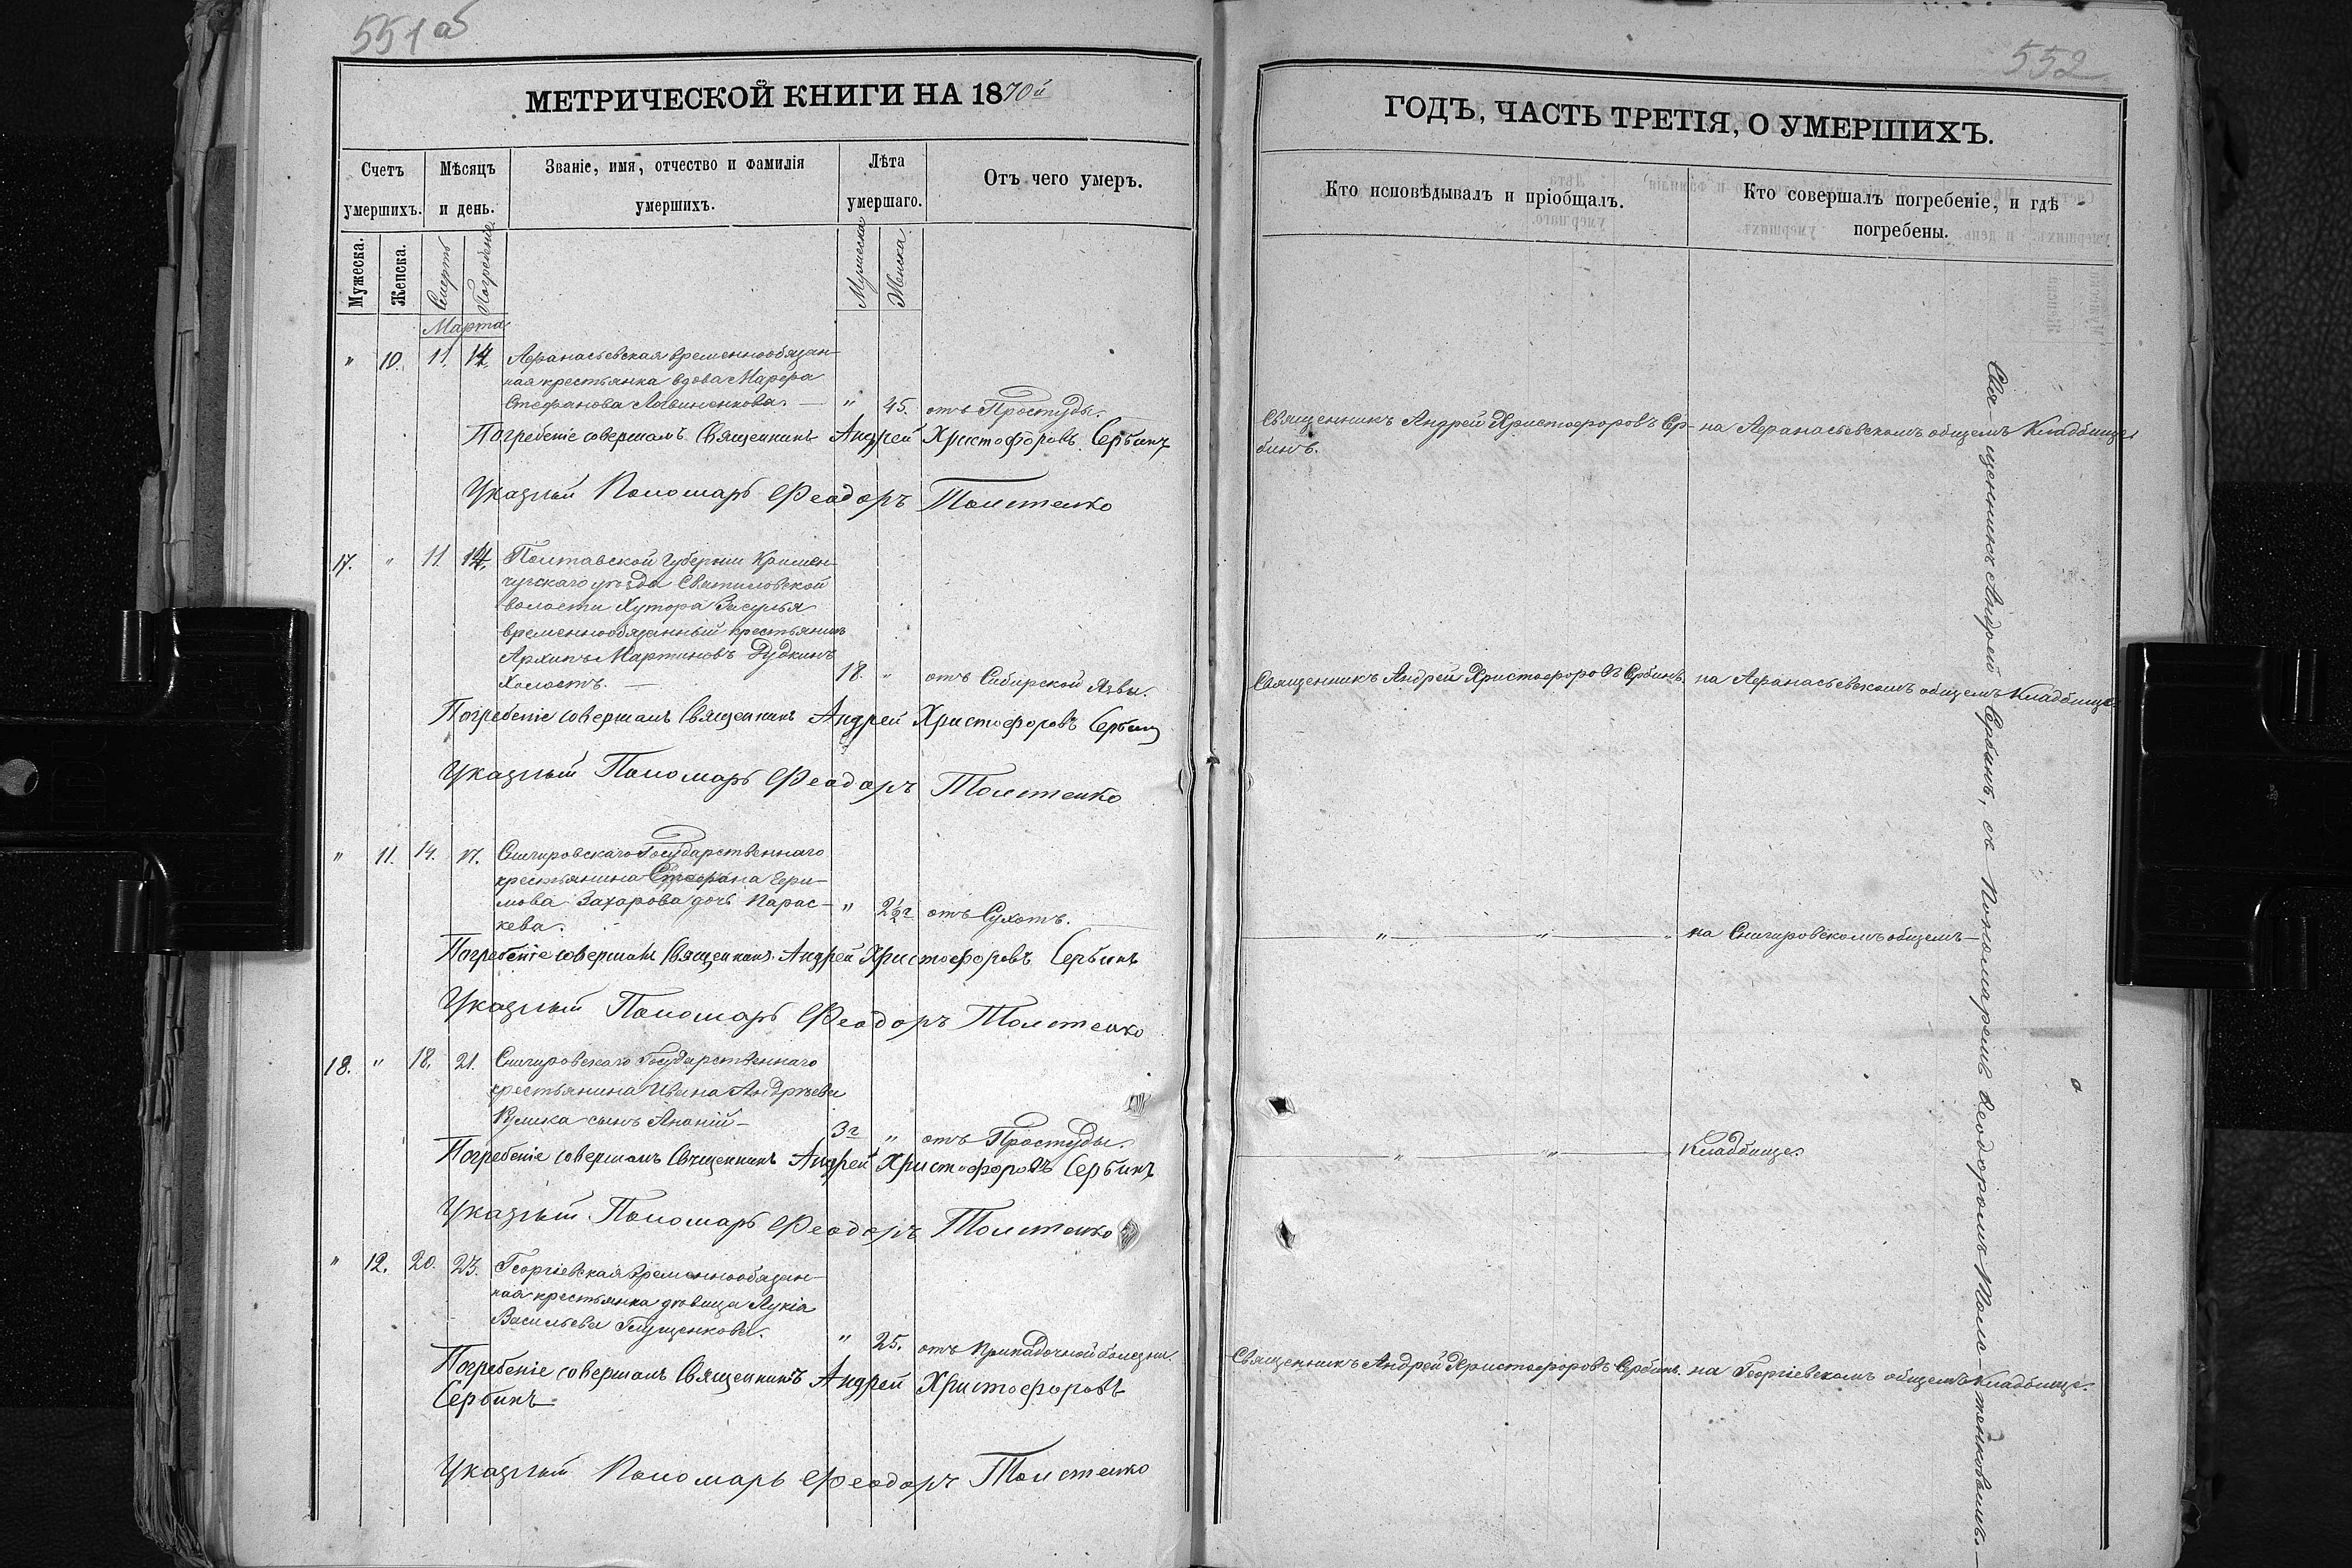 551 об
МЕТРИЧЕСКОЙ КНИГИ НА 1870й
Счетъ умершихъ.
Мѣсяцъ и день.
Званіе, имя, отчество и фамилія умершихъ.
Лѣта умершаго.
Отъ чего умеръ.
Мужеска.
Женска.
Смерть
Погребеніе
Мужеска
Женска
Марта
" 10. 11. 14. Афанасьевская временнообязан-
ная крестьянка вдова Марфа
Стефанова Литвиненкова. — " 45. отъ Простуды.
Погребеніе совершалъ Священникъ Андрей Христофоровъ Сербинъ
Указный Пономарь Феодоръ Толстенко
17. " 11. 14. Полтавской Губерніи Кримен-
чугскаго уѣзда Святиловской
волости Хутора Засулья
временнообязанный крестьянинъ
Архипъ Мартиновъ Дудкинъ
Холостъ. — 18. " отъ Сибирской Язвы.
Погребеніе совершалъ Священникъ Андрей Христофоровъ Сербинъ
Указный Пономарь Феодоръ Толстенко
" 11. 14. 17. Снигировскаго Государственнаго
крестьянина Стефана Ефи-
мова Захарова дочь Парас- " 2½ г отъ Сухотъ.
кева.
Погребеніе совершалъ Священникъ Андрей Христофоровъ Сербинъ
Указный Пономарь Феодоръ Толстенко
18. " 18. 21. Снигировскаго Государственнаго
крестьянина Ивана Андрѣева
Кулика сынъ Ананій — 3 г " отъ Простуды.
Погребеніе совершалъ Священникъ Андрей Христофоровъ Сербинъ
Указный Пономарь Феодоръ Толстенко
" 12. 20. 23. Георгіевская временнообязан-
ная крестьянка дѣвица Лукія
Васильева Глущенкова. " 25. отъ Припадочной болезни.
Погребеніе совершалъ Священникъ Андрей Христофоровъ
Сербинъ
Указный Пономарь Феодоръ Толстенко
552
ГОДЪ, ЧАСТЬ ТРЕТІЯ, О УМЕРШИХЪ.
Кто исповѣдывалъ и пріобщалъ.
Кто совершалъ погребеніе, и гдѣ
погребены.
Священникъ Андрей Христофоровъ Сер- на Афанасьевскомъ общемъ Кладбище
бинъ.
Священникъ Андрей Христофоровъ Сербинъ. на Афанасьевскомъ общемъ Кладбище
" " " на Снигировскомъ общемъ —
" " Кладбище.
Священникъ Андрей Христофоровъ Сербинъ. на Георгіевскомъ общемъ Кладбище.
Священникъ Андрей Сербинъ, съ Пономаремъ Феодоромъ Толстенковымъ. —